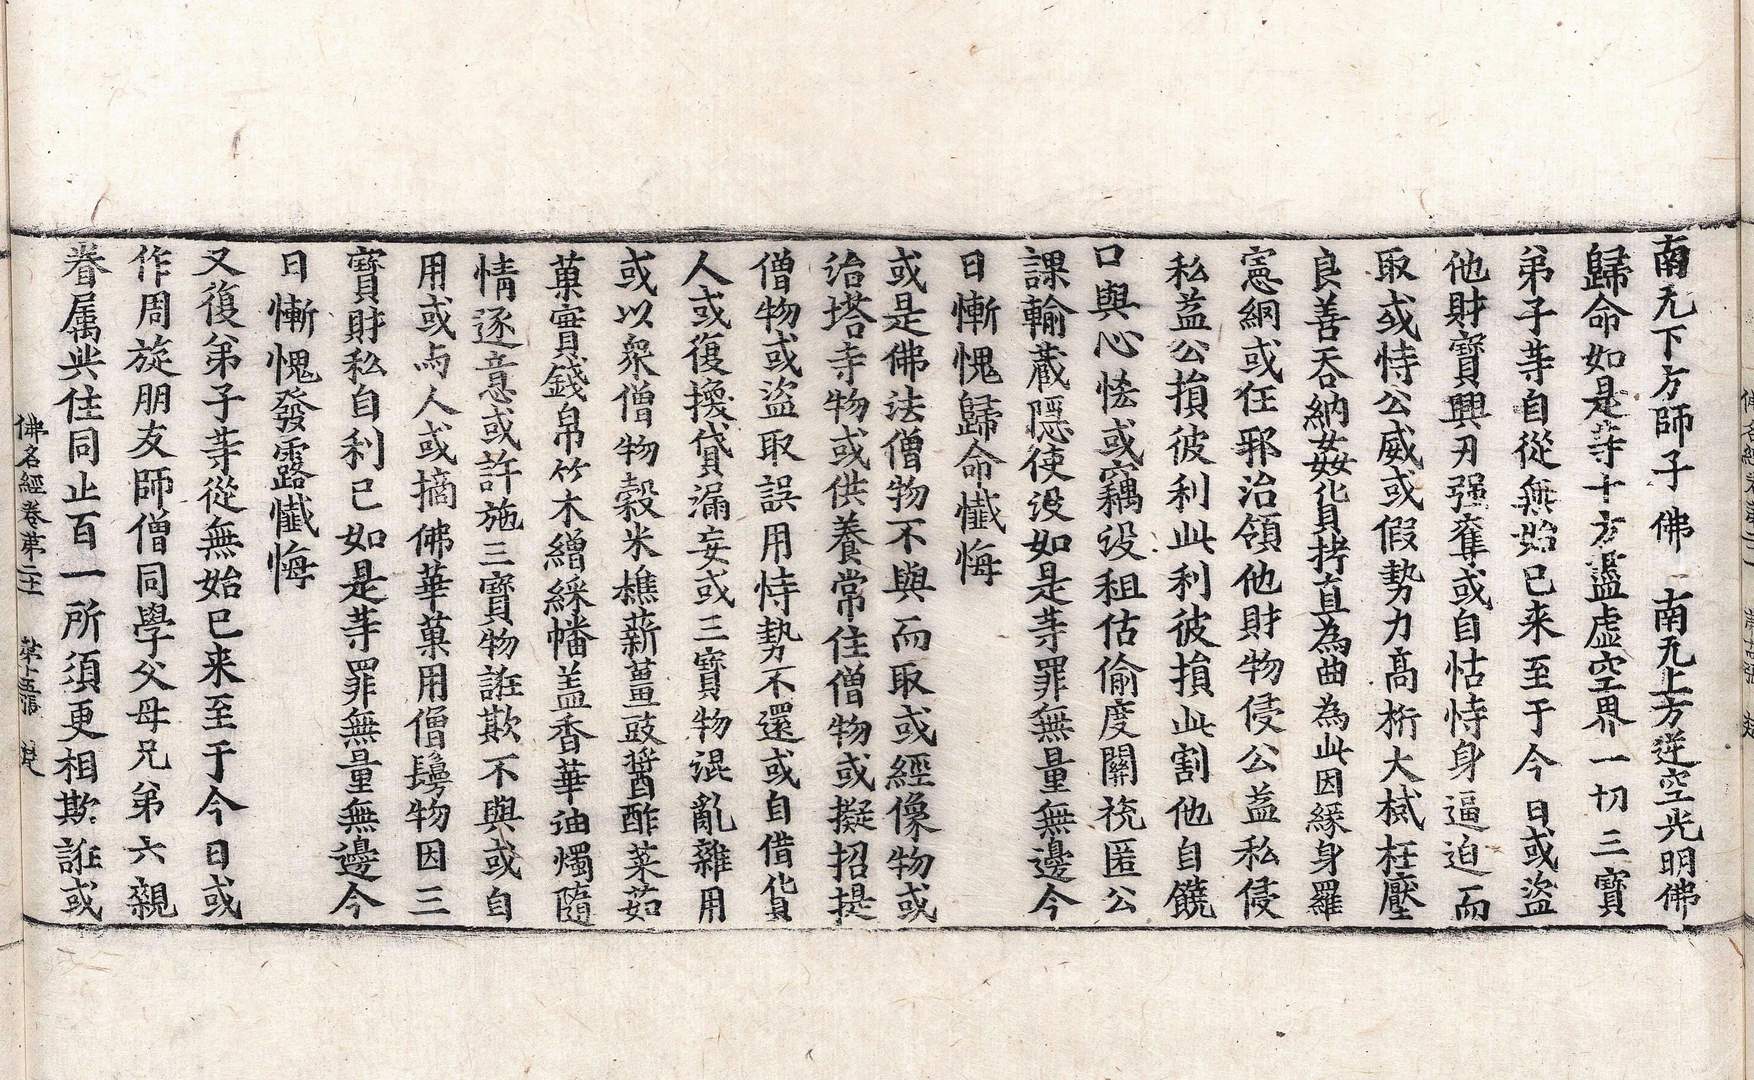 南无下方師子佛 南无上方逆空光明佛
歸命如是䓁十方盡虛空界一切三寶
弟子䓁自從無始已来至于今日或盜
他財寶興刃强奪或自怙恃身逼迫而
取或恃公威或假勢力高桁大棫枉壓
良善吞納姦貨拷直為曲為此因緣身羅
憲綱或任邪治領他財物侵公益私侵
私益公損彼利此利彼損此割他自饒
口與心恡或竊没租估偷度關稅匿公
課輸蔵隱使没如是䓁罪無量無邊今
日慚愧歸命懺悔
或是佛法僧物不與而取或經像物或
治塔寺物或供養常住僧物或擬招提
僧物或盜取誤用恃勢不還或自借貨
人或復換貸漏妄或三寶物混亂雜用
或以衆僧物穀米樵薪薑豉醬酢菜茹
菓實錢帛竹木繒綵幡盖香華油燭隨
情逐意或許施三寶物誑欺不與或自
用或与人或摘佛華菓用僧鬘物因三
寶財私自利已如是䓁罪無量無邊今
日慚愧發露懺悔
又復弟子䓁從無始已来至于今日或
作周旋朋友師僧同學父母兄弟六親
眷属共住同止百一所須更相欺誑或
佛名經卷第二十 第十五張